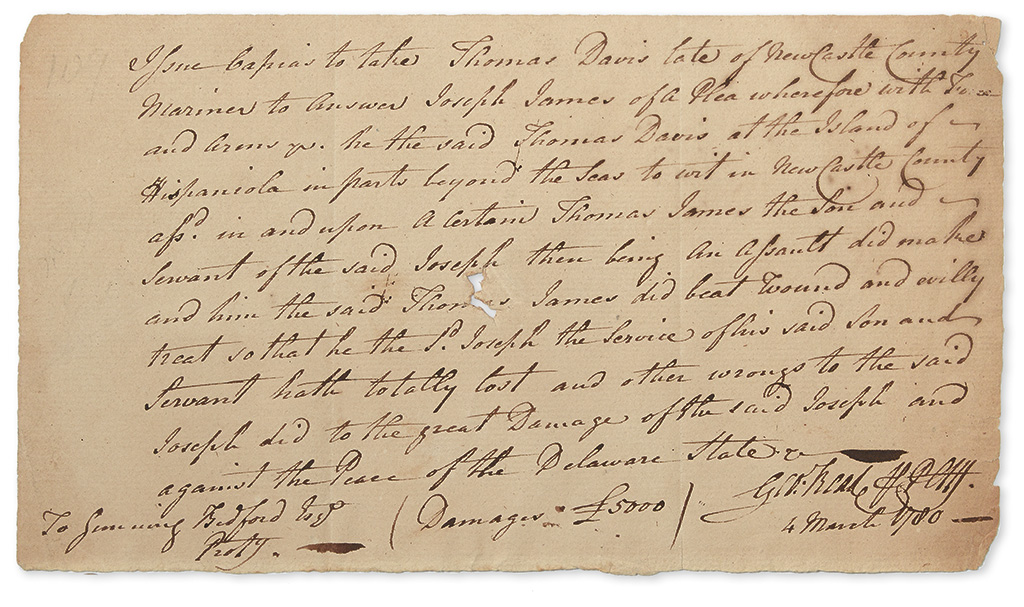 Issue Capias to take Thomas Davis late of NewCastle County
Mariner to Answer Joseph James of A Plea wherefore with Fo:
and Arms &c. he the said Thomas Davis at the Island of
Hispaniola in parts beyond the Seas to wit in NewCastle County
afsd. in and upon A Certain Thomas James the Son and
Servant of the said Joseph then being An Assault did make
and him the said Thomas James did beat Wound and evilly
treat so that he the Sd. Joseph the Service of his said Son and
Servant hath totally lost and other wrongs to the said
Joseph did to the great Damage of the said Joseph and
against the Peace of the Delaware State &c
Geo: Read
To Gunning Bedford Esqr
Proty.
(Damages £5000)
4 March 1780